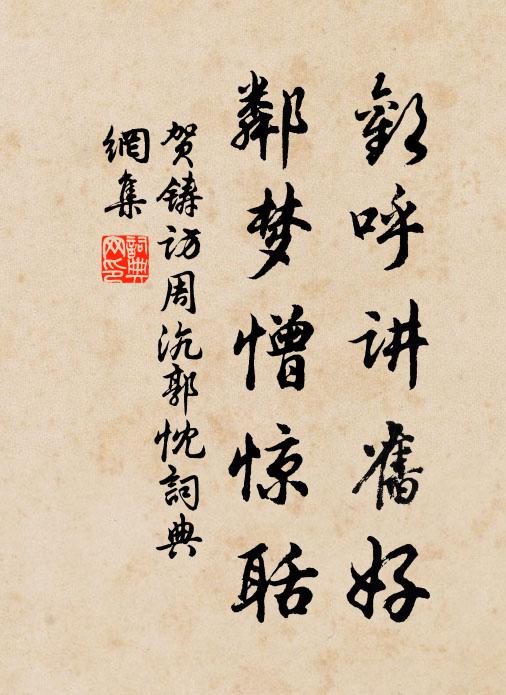 歡呼讲舊好
鄰梦憎惊聒
贺鑄访周沆郭忱詞典
網集
詞典网印